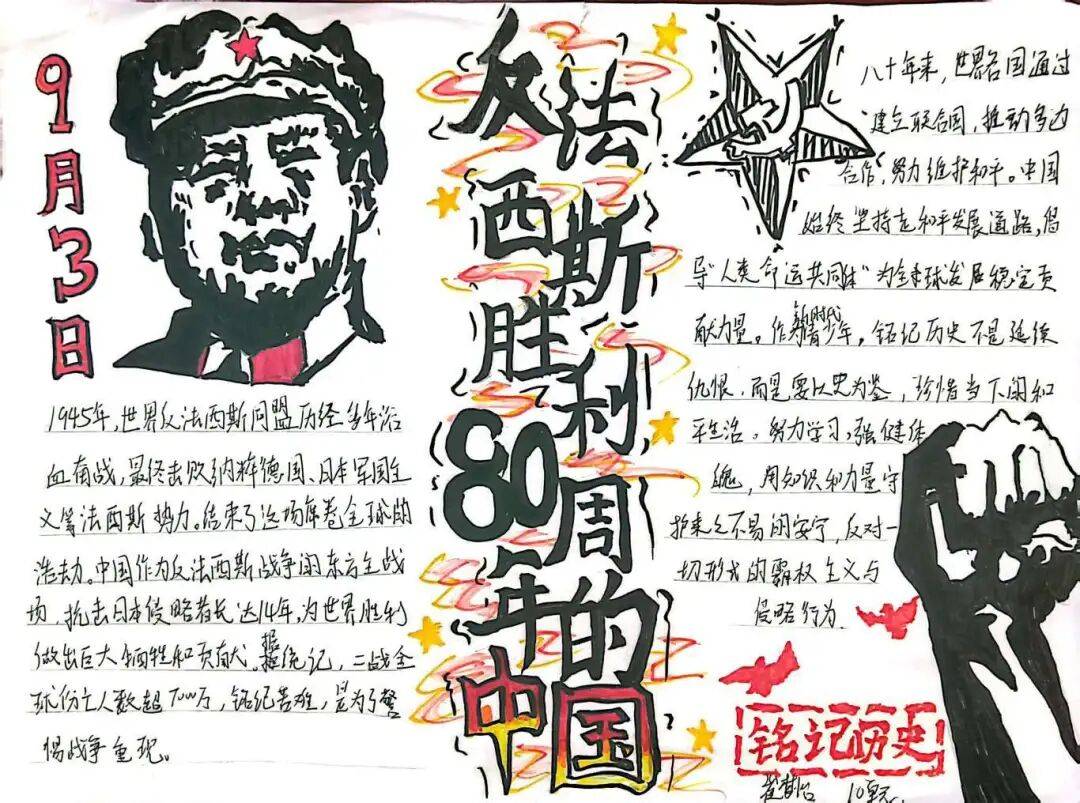 9月3日
反法西斯胜利80周年的中国
1945年，世界反法西斯同盟历经多年浴
血奋战，最终击败纳粹德国、日本军国主
义等法西斯势力。结束了这场席卷全球的
浩劫。中国作为反法西斯战争的东方主战
场，抗击日本侵略者长达14年，为世界胜利
做出巨大牺牲和贡献。据统记，二战全
球伤亡人数超7000万，铭纪苦难，是为了警
惕战争重现。
八十年来，世界各国通过
建立联合国，推动多边
合作，努力维护和平。中国
始终坚持走和平发展道路，倡
导“人类命运共同体”为全球发展稳定贡
献力量。作为新时代青少年，铭记历史不是延续
仇恨，而是要以史为鉴，珍惜当下的和
平生活。努力学习，强健体
魄，用知识和力量守
护来之不易的安宁，反对一
切形式的霸权主义与
侵略行为
铭记历史